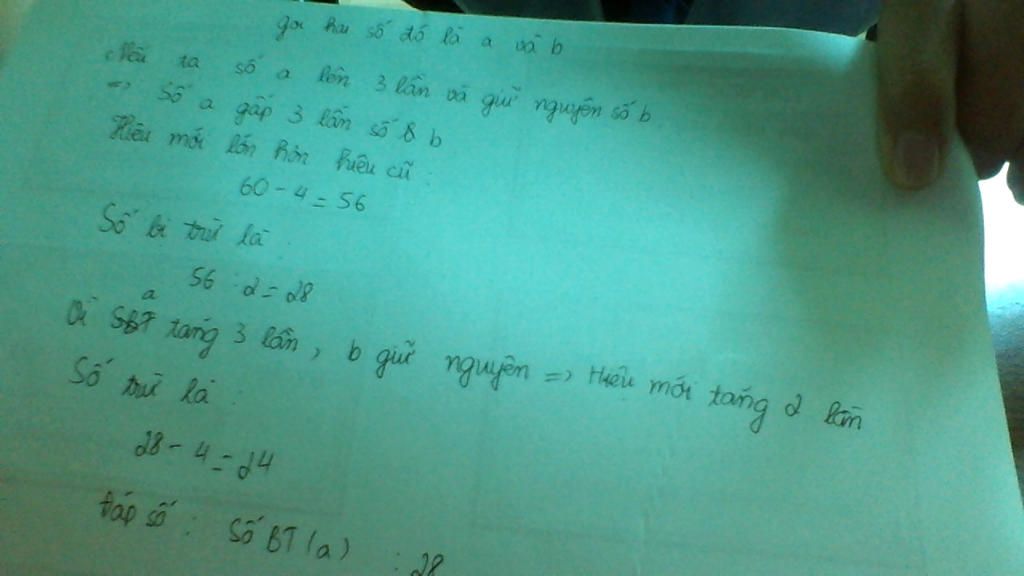 gọi hai số đó là a và b
Nếu ta số a lên 3 lần và giữ nguyên số b
=> Số a gấp 3 lần số b
Hiệu mới lớn hơn hiệu cũ :
60 - 4 = 56
Số bị trừ là :
56 : 2 = 28
a
Vì SBT tăng 3 lần, b giữ nguyên => Hiệu mới tăng 2 lần
Số trừ là :
28 - 4 = 24
Đáp số : Số BT (a) : 28